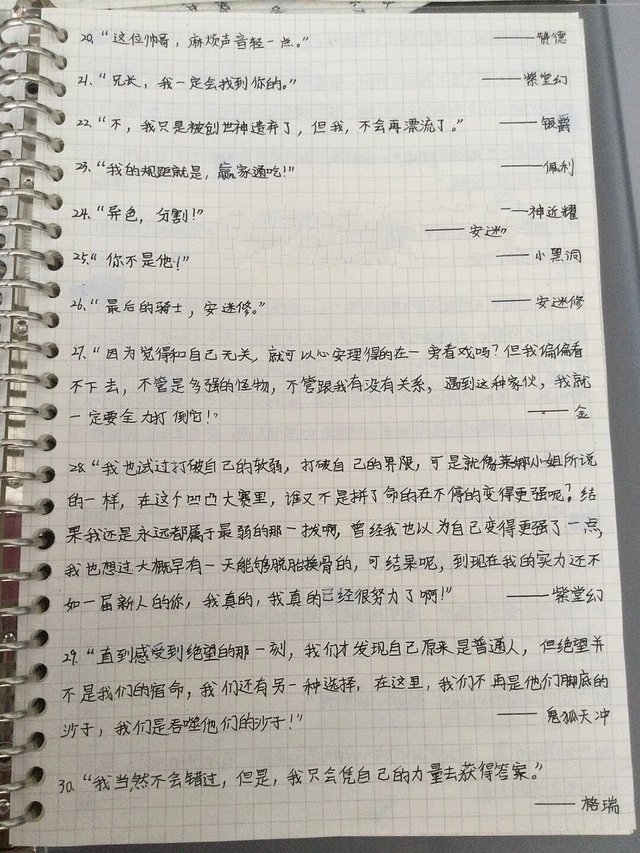 20. “这位帅哥，麻烦声音轻一点。” ——赞德
21. “兄长，我一定会找到你的。” ——紫堂幻
22. “不，我只是被创世神遗弃了，但我，不会再漂流了。” ——银爵
23. “我的规距就是，赢家通吃！” ——佩利
24. “异色，分割！” ——神近耀
——安迷
25. “你不是他！” ——小黑洞
26. “最后的骑士，安迷修。” ——安迷修
27. “因为觉得和自己无关，就可以心安理得的在一旁看戏吗？但我偏偏看
不下去，不管是多强的怪物，不管跟我有没有关系，遇到这种家伙，我就
一定要全力打倒它！” ——金
28. “我也试过打破自己的软弱，打破自己的界限，可是就像莱娜小姐所说
的一样，在这个凹凸大赛里，谁又不是拼了命的在不停的变得更强呢？结
果我还是永远都属于最弱的那一拨啊，曾经我也以为自己变得更强了一点，
我也想过大概早有一天能够脱胎换骨的，可结果呢，到现在我的实力还不
如一届新人的你，我真的，我真的已经很努力了啊！” ——紫堂幻
29. “直到感受到绝望的那一刻，我们才发现自己原来是普通人，但绝望并
不是我们的宿命，我们还有另一种选择，在这里，我们不再是他们脚底的
沙子，我们是吞噬他们的沙子！” ——鬼狐天冲
30. “我当然不会错过，但是，我只会凭自己的力量去获得答案。”
——格瑞